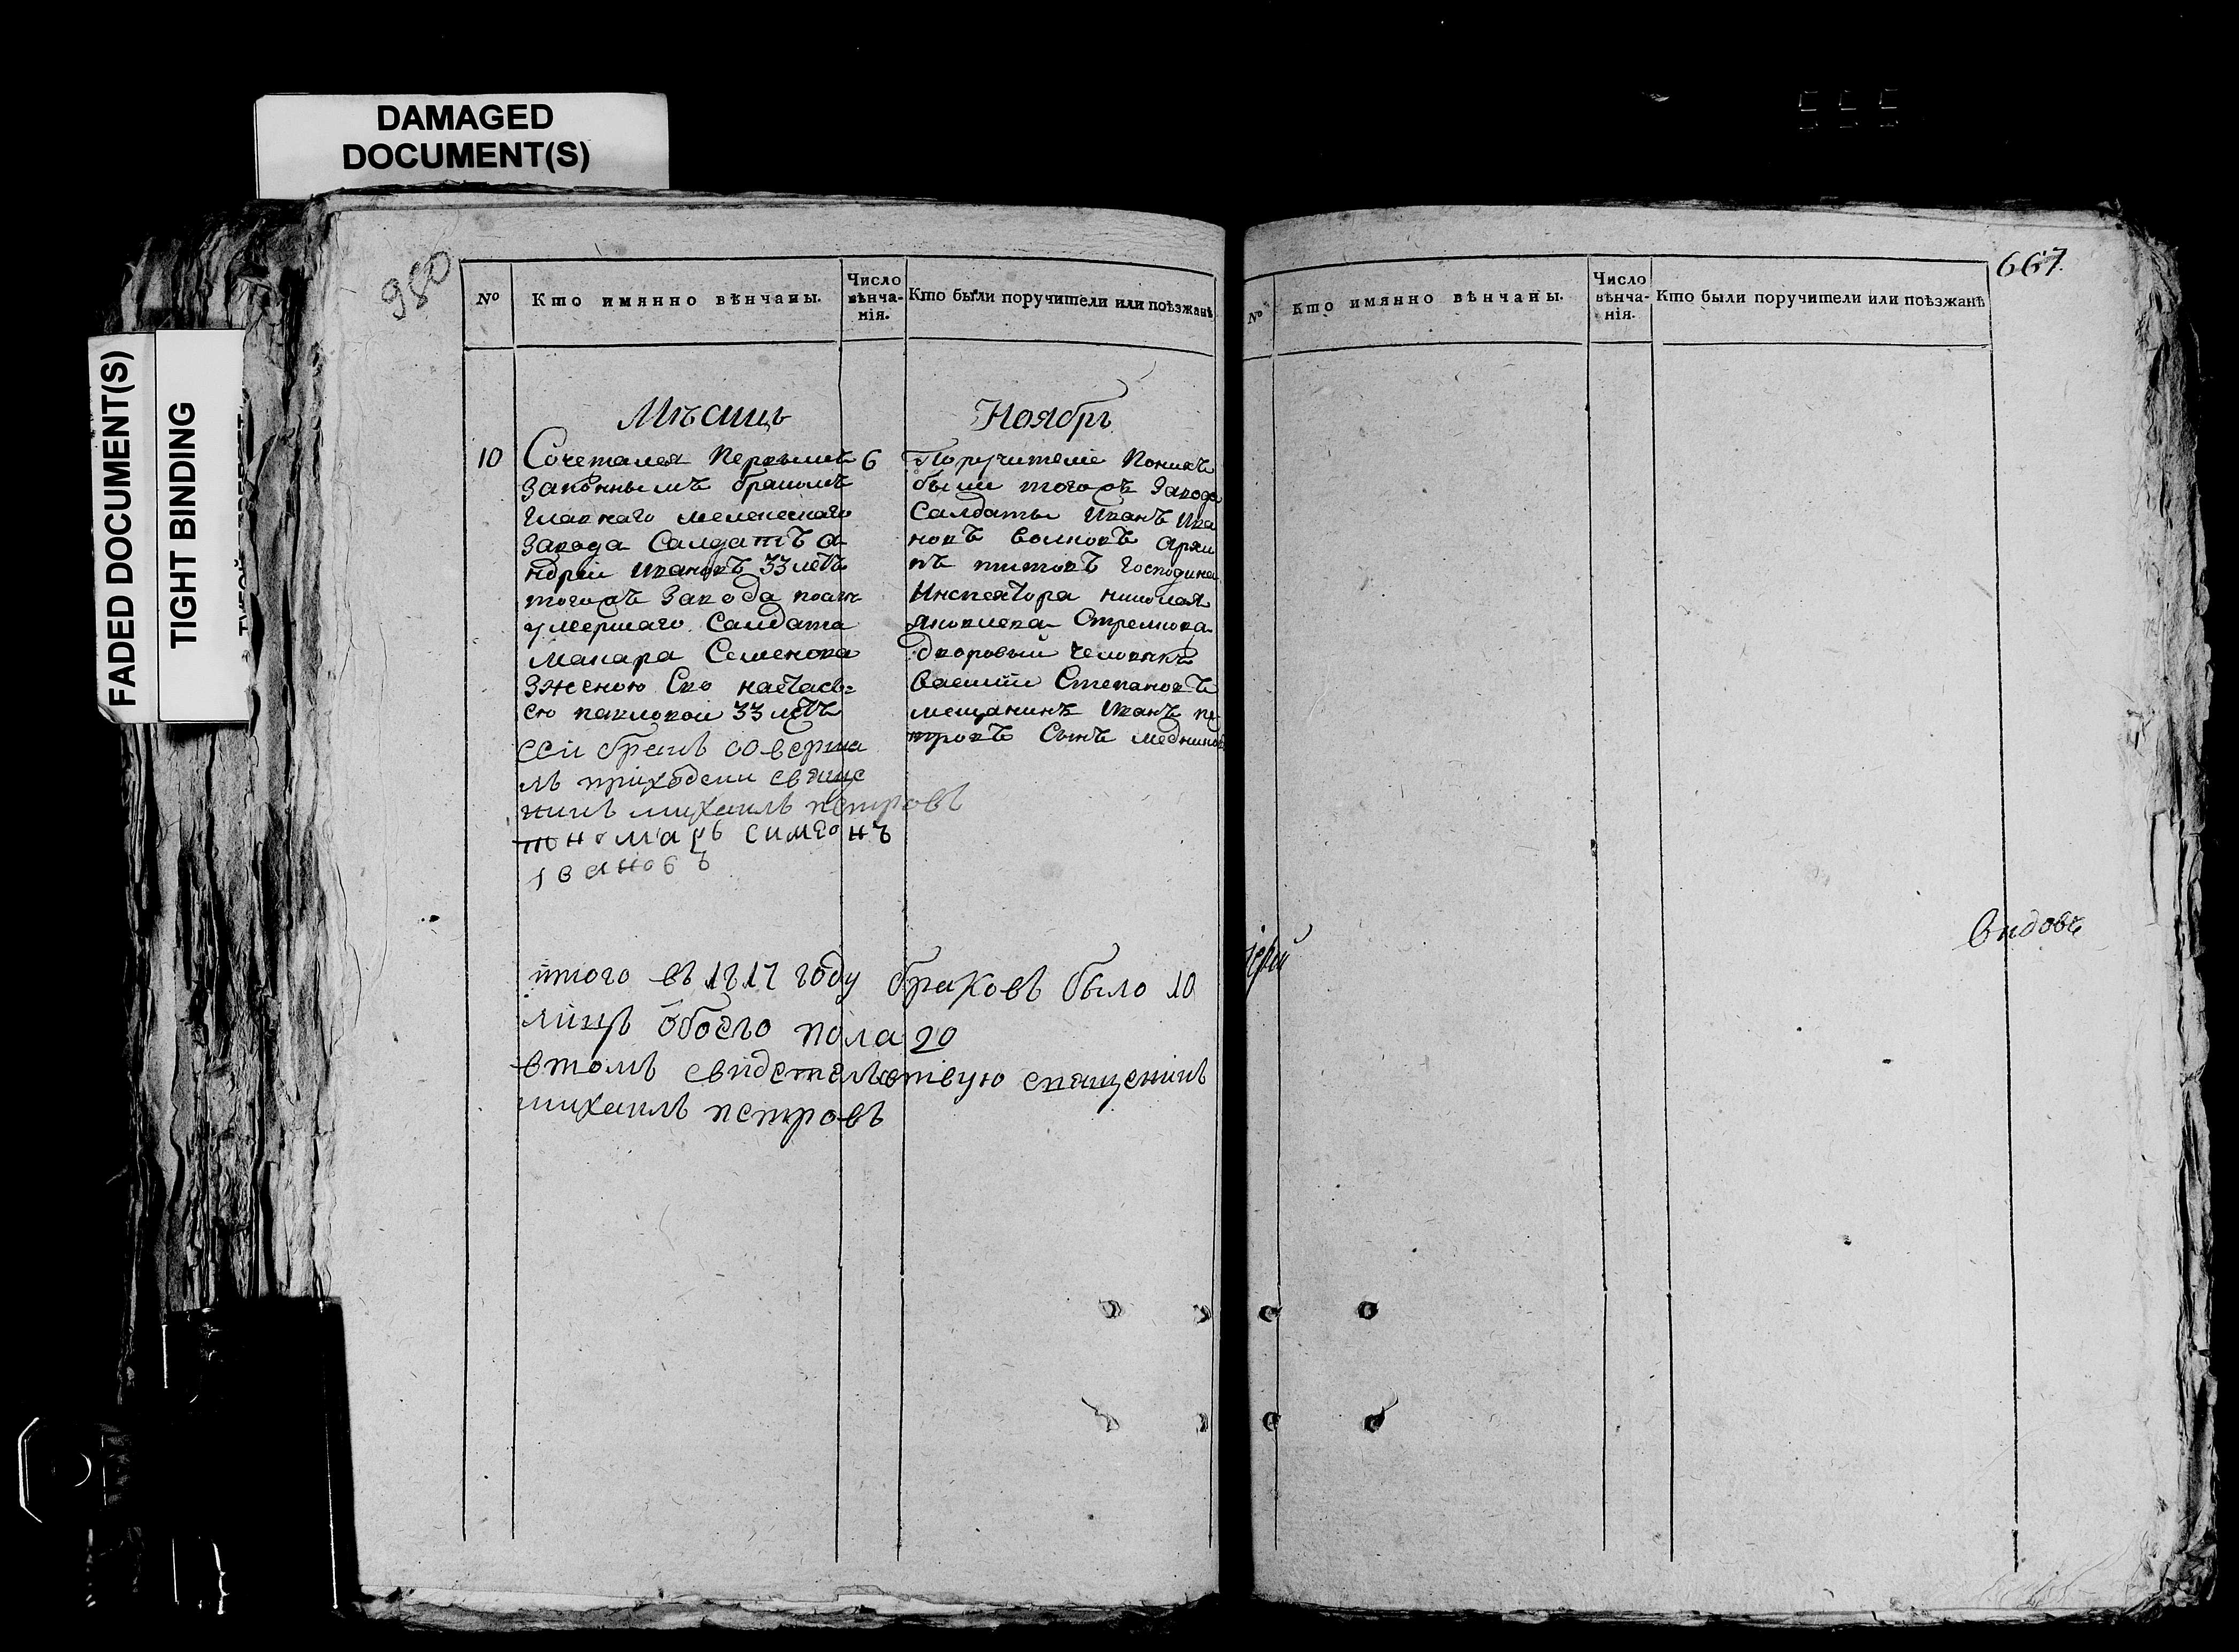 DAMAGED
DOCUMENT(S)
FADED DOCUMENT(S)
TIGHT BINDING
980
№
Кто имянно вѣнчаны.
Число
вѣнча-
нія.
Кто были поручители или поѣзжанѣ
Мѣсяцъ
Ноябрь
10
Сочетался первымъ
законнымъ бракомъ
главнаго мелекескаго
завода Салдатъ а
ндреи ивановъ 33 летъ
тогожъ завода послѣ
умершаго Салдата
макара Семенова
зженою Ево настась=
ею павловои 33 летъ
сеи бракъ соверши
лъ приходски свяще
никъ михаилъ петровъ
пономарь симеонъ
івановъ
6
Поручителіе Поних
были тогожъ Завода
Салдаты Иванъ Ива
новъ волковъ архи
пъ титовъ Господина
Инспектора николая
яковлева Стрелкова
дворовыи человѣкъ
василіи Степановъ
мещанинъ Иванъ пе
тровъ Сынъ медников
итого въ 1817 году браковъ было 10
лицъ обоего пола 20
втомъ свидетельствую священикъ
михаилъ петровъ
667
№
Кто имянно вѣнчаны.
Число
вѣнча-
нія.
Кто были поручители или поѣзжанѣ
іерей